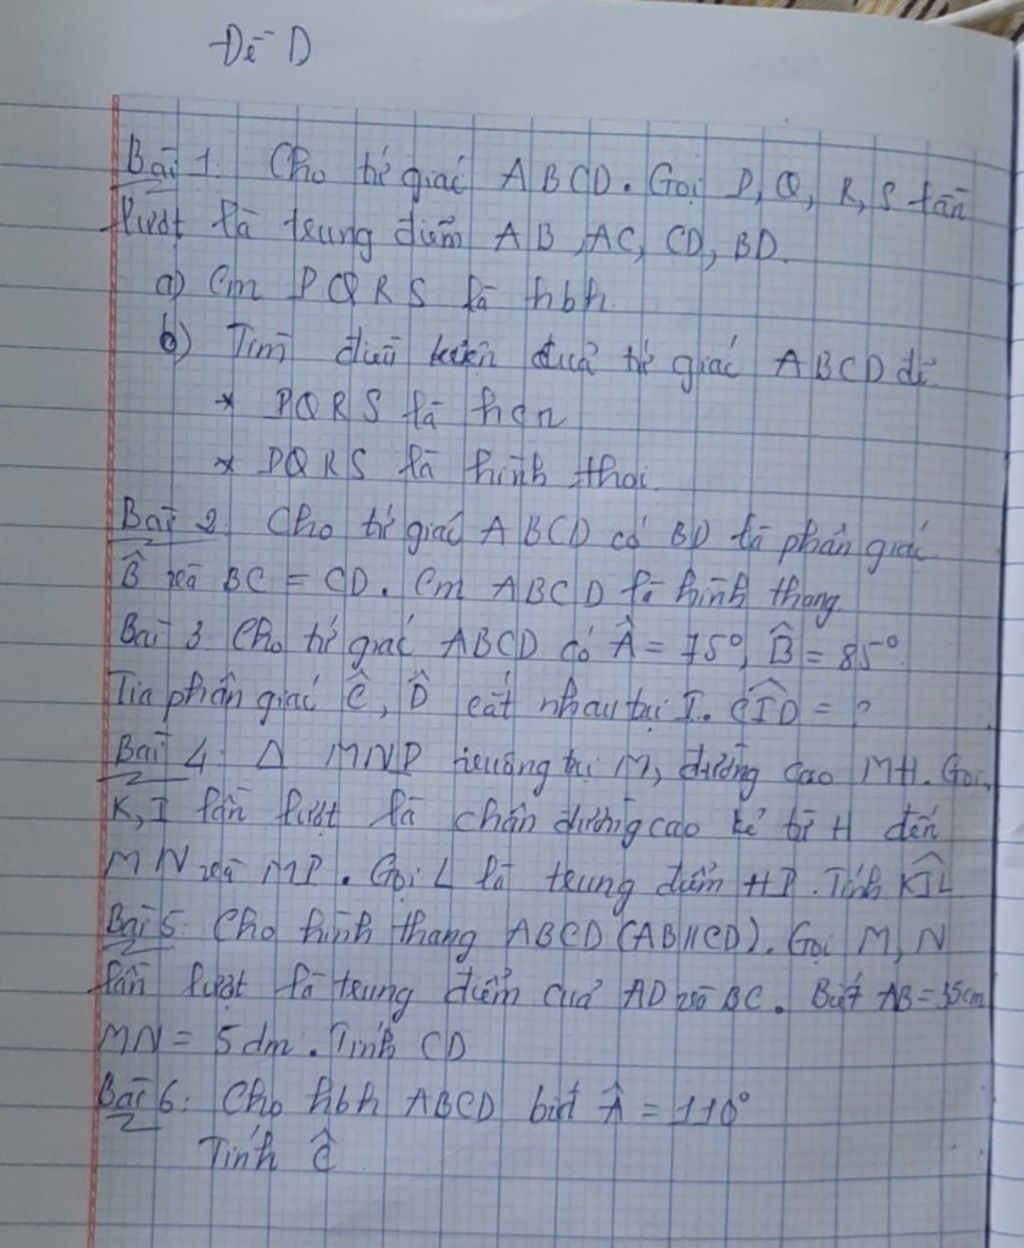 Đề D
Bài 1. Cho tứ giác ABCD. Gọi P, Q, R, S lần
lượt là trung điểm AB, AC, CD, BD.
a) Cm PQRS là hbh.
b) Tìm điều kiện của tứ giác ABCD để
* PQRS là hcn
* PQRS là hình thoi.
Bài 2. Cho tứ giác ABCD có BD là phân giác
B̂ và BC = CD. Cm ABCD là hình thang.
Bài 3. Cho tứ giác ABCD có Â = 75°, B̂ = 85°.
Tia phân giác Ĉ, D̂ cắt nhau tại I. CÎD = ?
Bài 4: Δ MNP vuông tại M, đường cao MH. Gọi
K, I lần lượt là chân đường cao kẻ từ H đến
MN và MP. Gọi L là trung điểm HP. Tính KÎL
Bài 5: Cho hình thang ABCD (AB//CD). Gọi M, N
lần lượt là trung điểm của AD và BC. Biết AB = 35cm
MN = 5dm. Tính CD
Bài 6: Cho hbh ABCD biết Â = 110°
Tính Ĉ